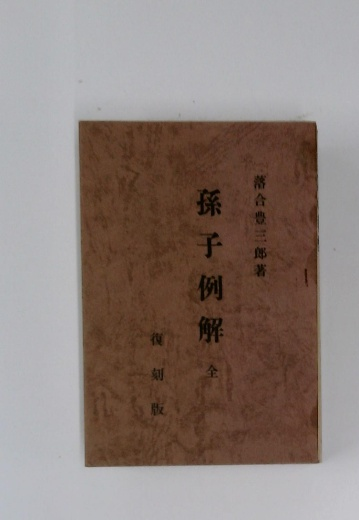 落合豊三郎著
孫子例解 全
復刻版